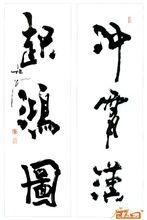 沖霄漢
起鴻圖